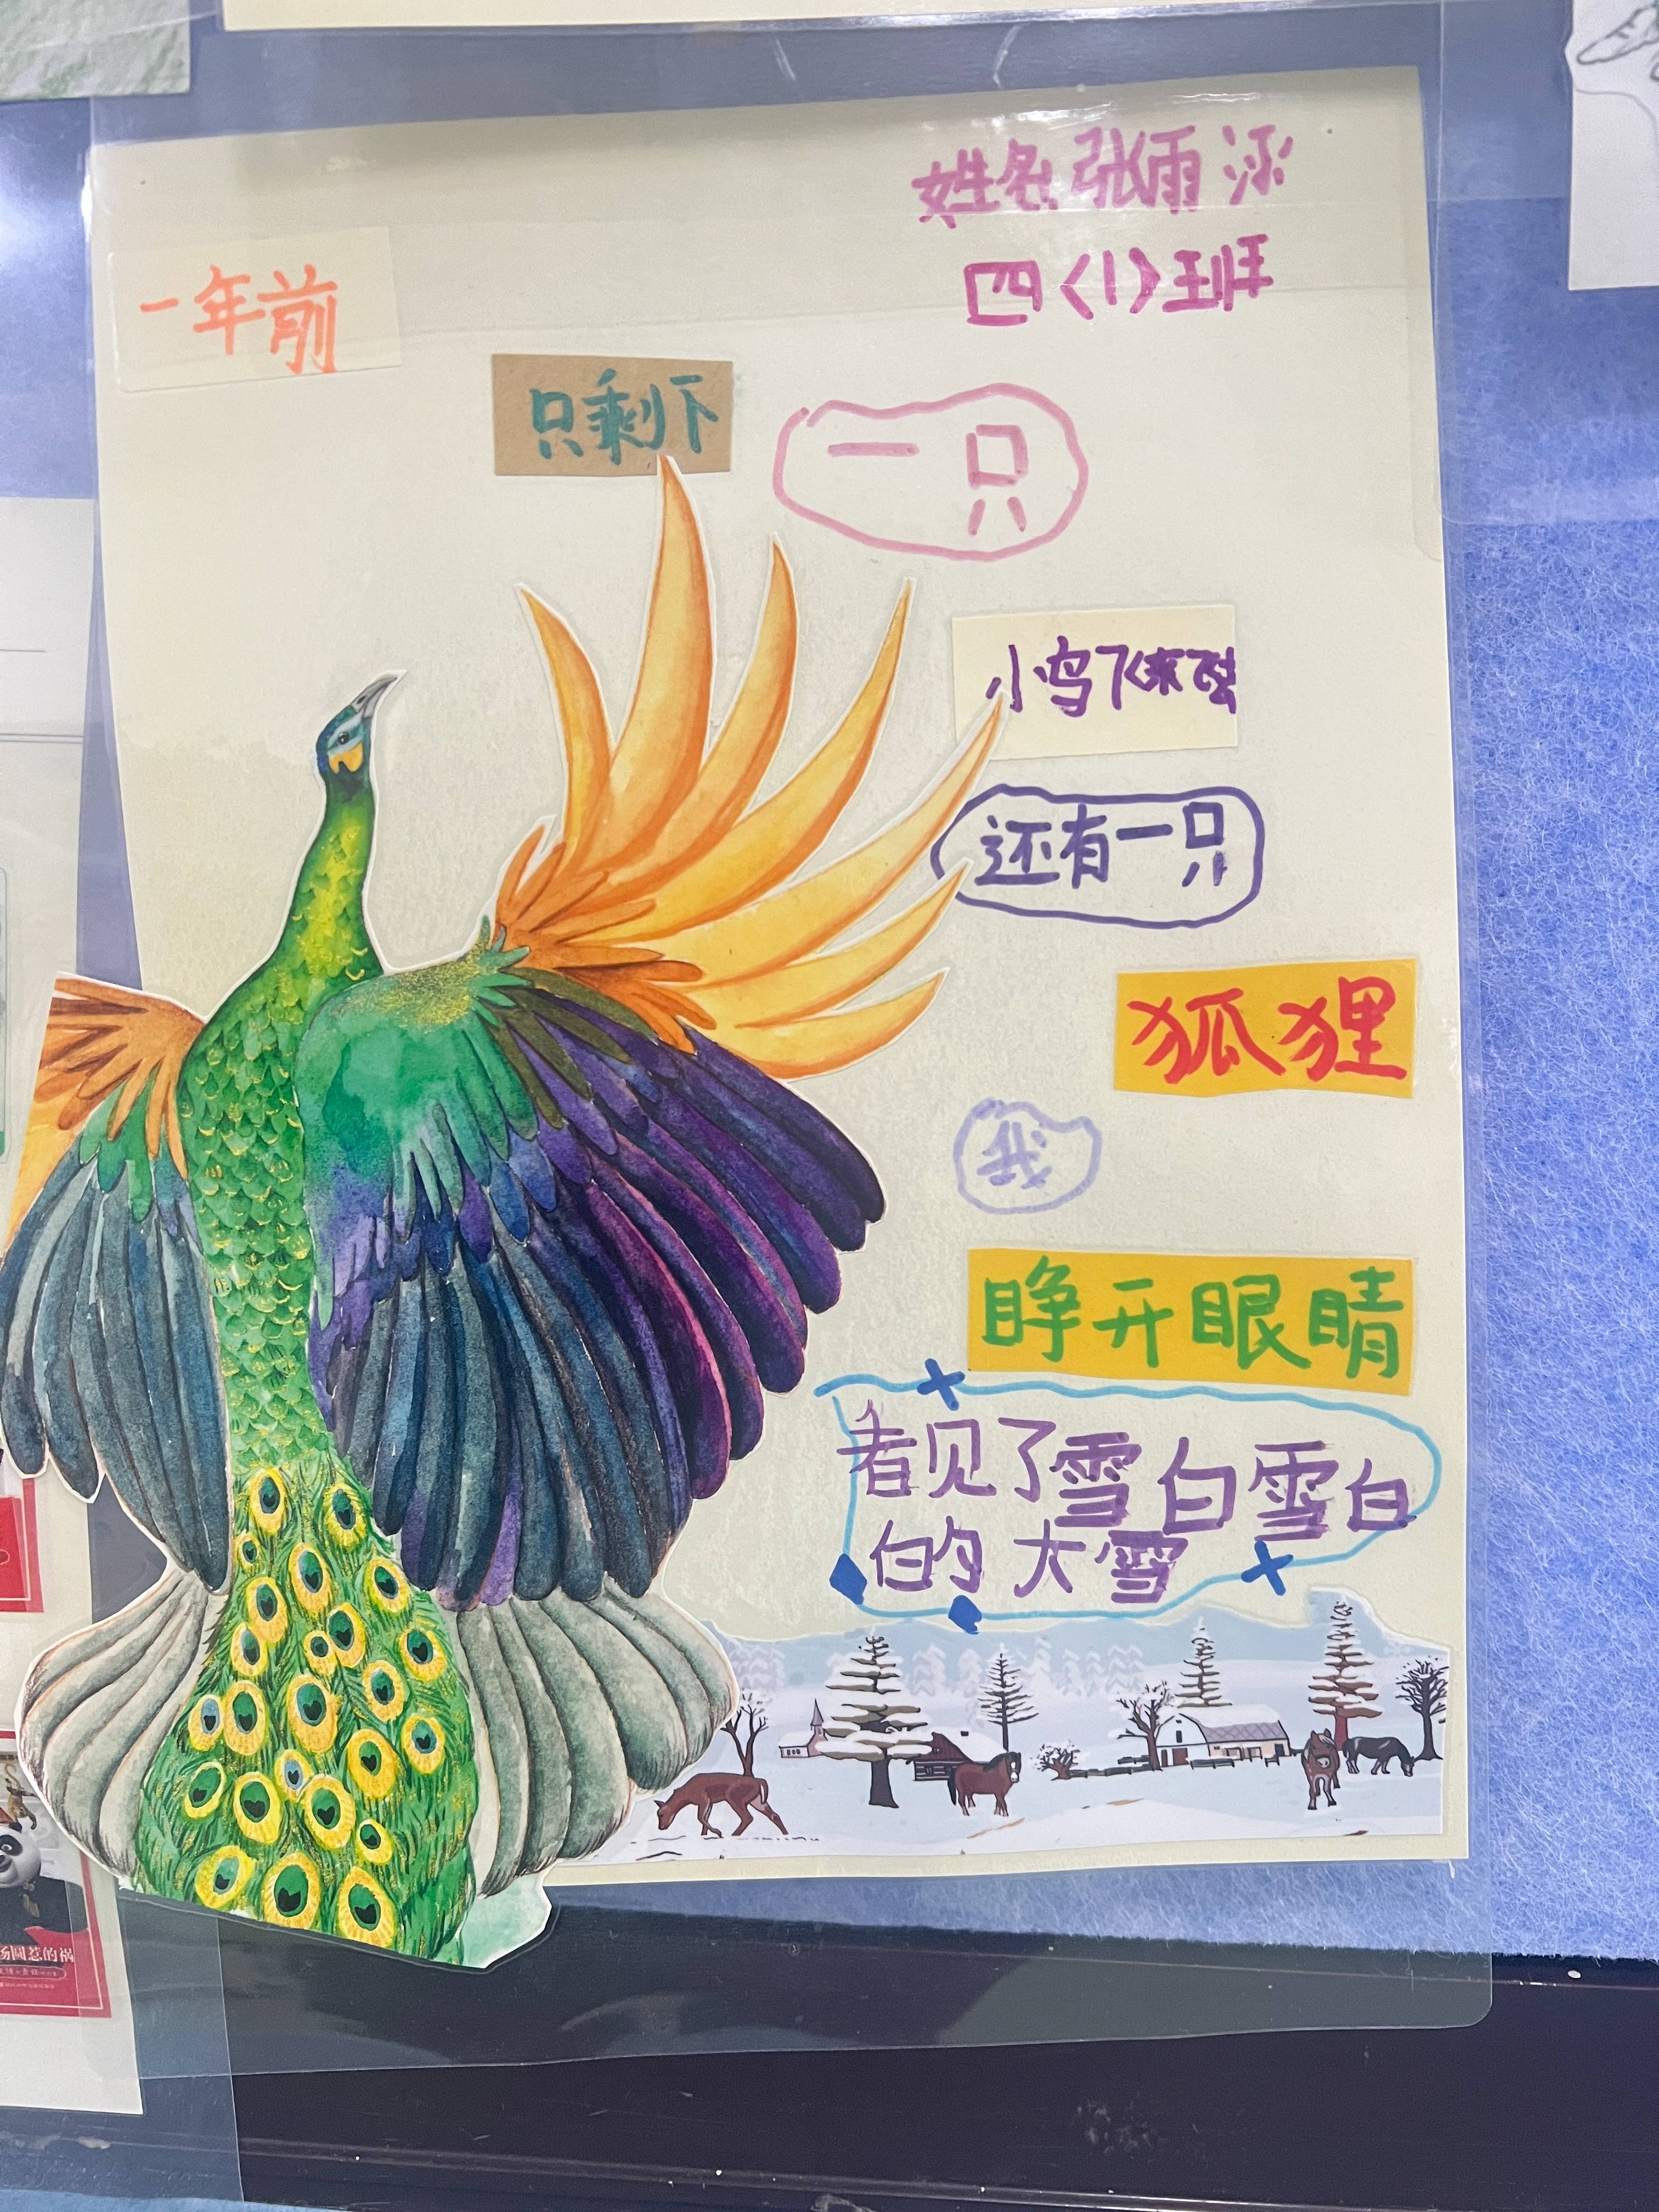 姓名张雨涵
四〈1〉班
一年前
只剩下
一只
小鸟飞来飞去
还有一只
狐狸
我
睁开眼睛
看见了雪白雪白
的大雪
汤圆惹的祸